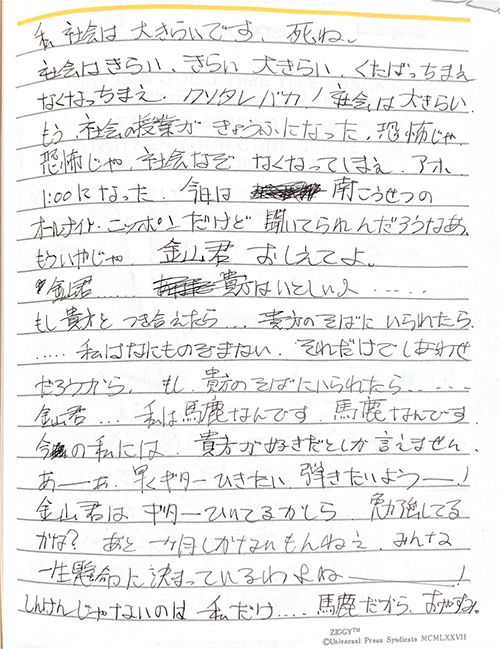 私 社会は 大きらいです、死ね。
社会はきらい、きらい 大きらい、くたばっちまえ
なくなっちまえ、クソタレバカ! 社会は大きらい、
もう 社会の授業が きょうふになった、恐怖じゃ、
恐怖じゃ、社会なぞ なくなってしまえ、アホ、
1:00になった、今日は 南こうせつの
オールナイト・ニッポンだけど 聞いてられんだろうなあ、
もういやじゃ、金山君 おしえてよ。
金山君…… 貴方はいとしい人……
もし貴方と つき合えたら… 貴方のそばに いられたら、
…… 私はなにものぞまない、それだけで しあわせ
だろうから、もし、貴方のそばにいられたら……
金山君…、私は馬鹿なんです 馬鹿なんです
今の私には、貴方が好きだとしか 言えません、
あーーあ、早くギターひきたい、弾きたいよう——!
金山君は ギターひいてるかしら、勉強してる
かな? あと 一ヶ月しかないもんねえ、みんな
一生懸命に決まっているわよね————!
しんけんじゃないのは 私だけ…… 馬鹿だから、おやすみ。
ZIGGY™
©Universal Press Syndicate MCMLXXVII